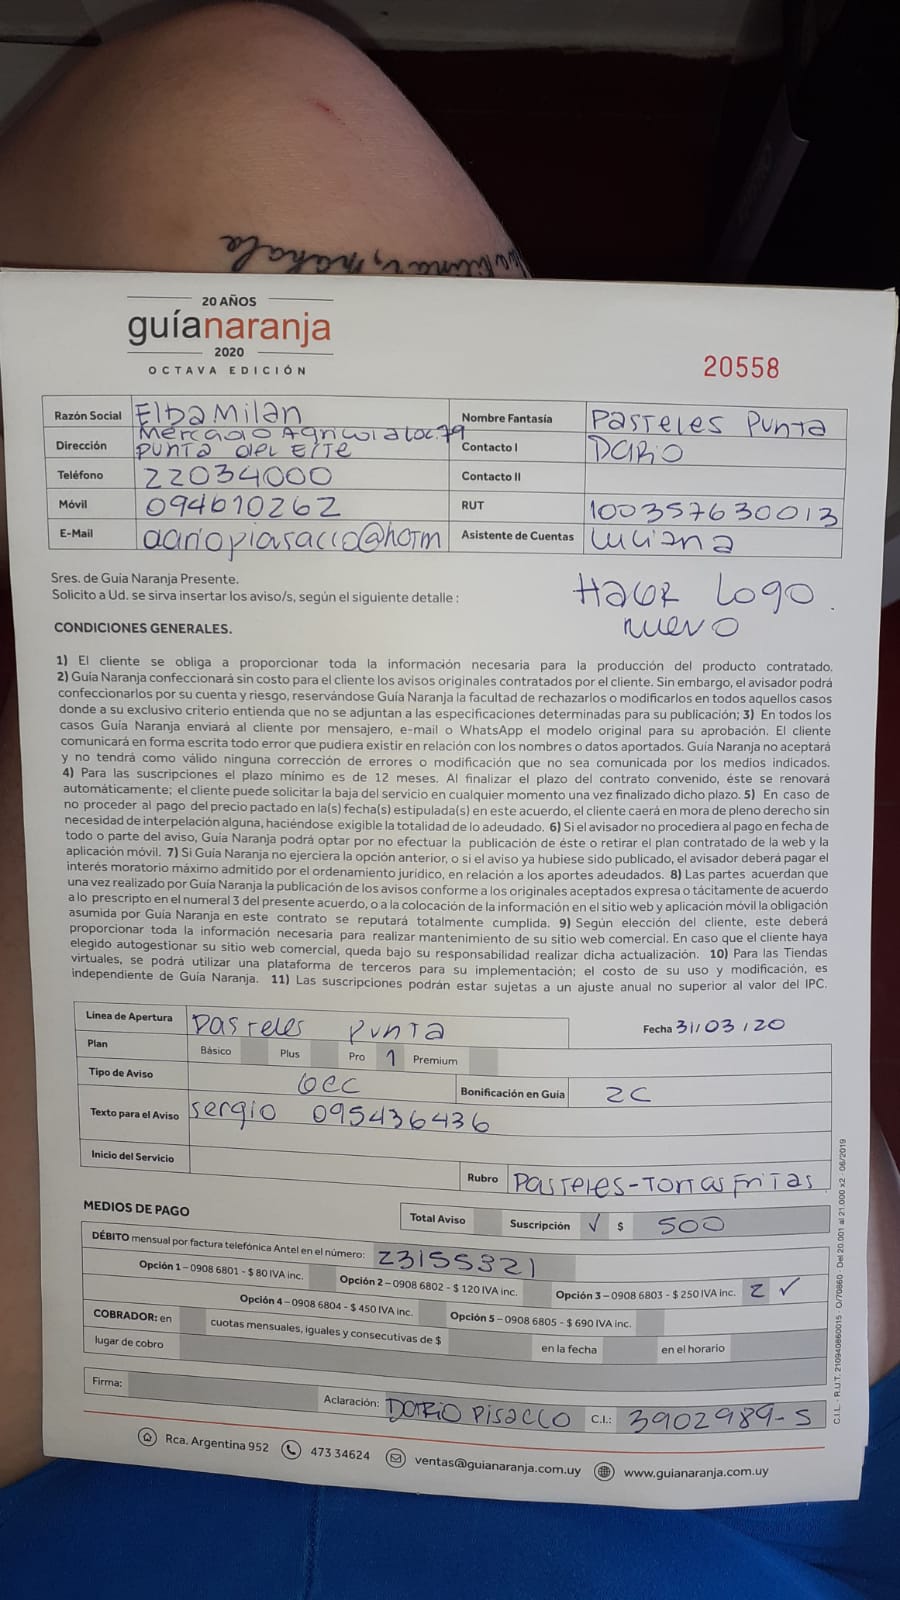 20 AÑOS
guíanaranja
2020
OCTAVA EDICIÓN
20558
Razón Social Elba Milan Nombre Fantasía Pasteles Punta
Dirección Mercado Agricola Loc. 79 Punta del Este Contacto I Dario
Teléfono 22034000 Contacto II
Móvil 094610262 RUT 100357630013
E-Mail @hotm Asistente de Cuentas Luciana
Sres. de Guía Naranja Presente.
Solicito a Ud. se sirva insertar los aviso/s, según el siguiente detalle :
Hacer Logo
nuevo
CONDICIONES GENERALES.
1) El cliente se obliga a proporcionar toda la información necesaria para la producción del producto contratado.
2) Guía Naranja confeccionará sin costo para el cliente los avisos originales contratados por el cliente. Sin embargo, el avisador podrá
confeccionarlos por su cuenta y riesgo, reservándose Guía Naranja la facultad de rechazarlos o modificarlos en todos aquellos casos
donde a su exclusivo criterio entienda que no se adjuntan a las especificaciones determinadas para su publicación; 3) En todos los
casos Guía Naranja enviará al cliente por mensajero, e-mail o WhatsApp el modelo original para su aprobación. El cliente
comunicará en forma escrita todo error que pudiera existir en relación con los nombres o datos aportados. Guía Naranja no aceptará
y no tendrá como válido ninguna corrección de errores o modificación que no sea comunicada por los medios indicados.
4) Para las suscripciones el plazo mínimo es de 12 meses. Al finalizar el plazo del contrato convenido, éste se renovará
automáticamente; el cliente puede solicitar la baja del servicio en cualquier momento una vez finalizado dicho plazo. 5) En caso de
no proceder al pago del precio pactado en la(s) fecha(s) estipulada(s) en este acuerdo, el cliente caerá en mora de pleno derecho sin
necesidad de interpelación alguna, haciéndose exigible la totalidad de lo adeudado. 6) Si el avisador no procediera al pago en fecha de
todo o parte del aviso, Guía Naranja podrá optar por no efectuar la publicación de éste o retirar el plan contratado de la web y la
aplicación móvil. 7) Si Guía Naranja no ejerciera la opción anterior, o si el aviso ya hubiese sido publicado, el avisador deberá pagar el
interés moratorio máximo admitido por el ordenamiento jurídico, en relación a los aportes adeudados. 8) Las partes acuerdan que
una vez realizado por Guía Naranja la publicación de los avisos conforme a los originales aceptados expresa o tácitamente de acuerdo
a lo prescripto en el numeral 3 del presente acuerdo, o a la colocación de la información en el sitio web y aplicación móvil la obligación
asumida por Guía Naranja en este contrato se reputará totalmente cumplida. 9) Según elección del cliente, este deberá
proporcionar toda la información necesaria para realizar mantenimiento de su sitio web comercial. En caso que el cliente haya
elegido autogestionar su sitio web comercial, queda bajo su responsabilidad realizar dicha actualización. 10) Para las Tiendas
virtuales, se podrá utilizar una plataforma de terceros para su implementación; el costo de su uso y modificación, es
independiente de Guía Naranja. 11) Las suscripciones podrán estar sujetas a un ajuste anual no superior al valor del IPC.
Línea de Apertura Pasteles Punta Fecha 31/03/20
Plan Básico Plus Pro 1 Premium
Tipo de Aviso 6cc Bonificación en Guía 2C
Texto para el Aviso Sergio 095436436
Inicio del Servicio
Rubro Pasteles-Tortas Fritas
MEDIOS DE PAGO
Total Aviso Suscripción √ $ 500
DÉBITO mensual por factura telefónica Antel en el número: 23155321
Opción 1 – 0908 6801 - $ 80 IVA inc. Opción 2 – 0908 6802 - $ 120 IVA inc. Opción 3 – 0908 6803 - $ 250 IVA inc. 2 ✓
Opción 4 – 0908 6804 - $ 450 IVA inc. Opción 5 – 0908 6805 - $ 690 IVA inc.
COBRADOR: en cuotas mensuales, iguales y consecutivas de $ en la fecha en el horario
lugar de cobro
Firma: Aclaración: Dario Pisacco C.I.: 3902989-5
Rca. Argentina 952 473 34624 ventas@guianaranja.com.uy www.guianaranja.com.uy
C.I.L. - R.U.T. 210940860015 - O/70860 - Del 20.001 al 21.000 x2 - 06/2019